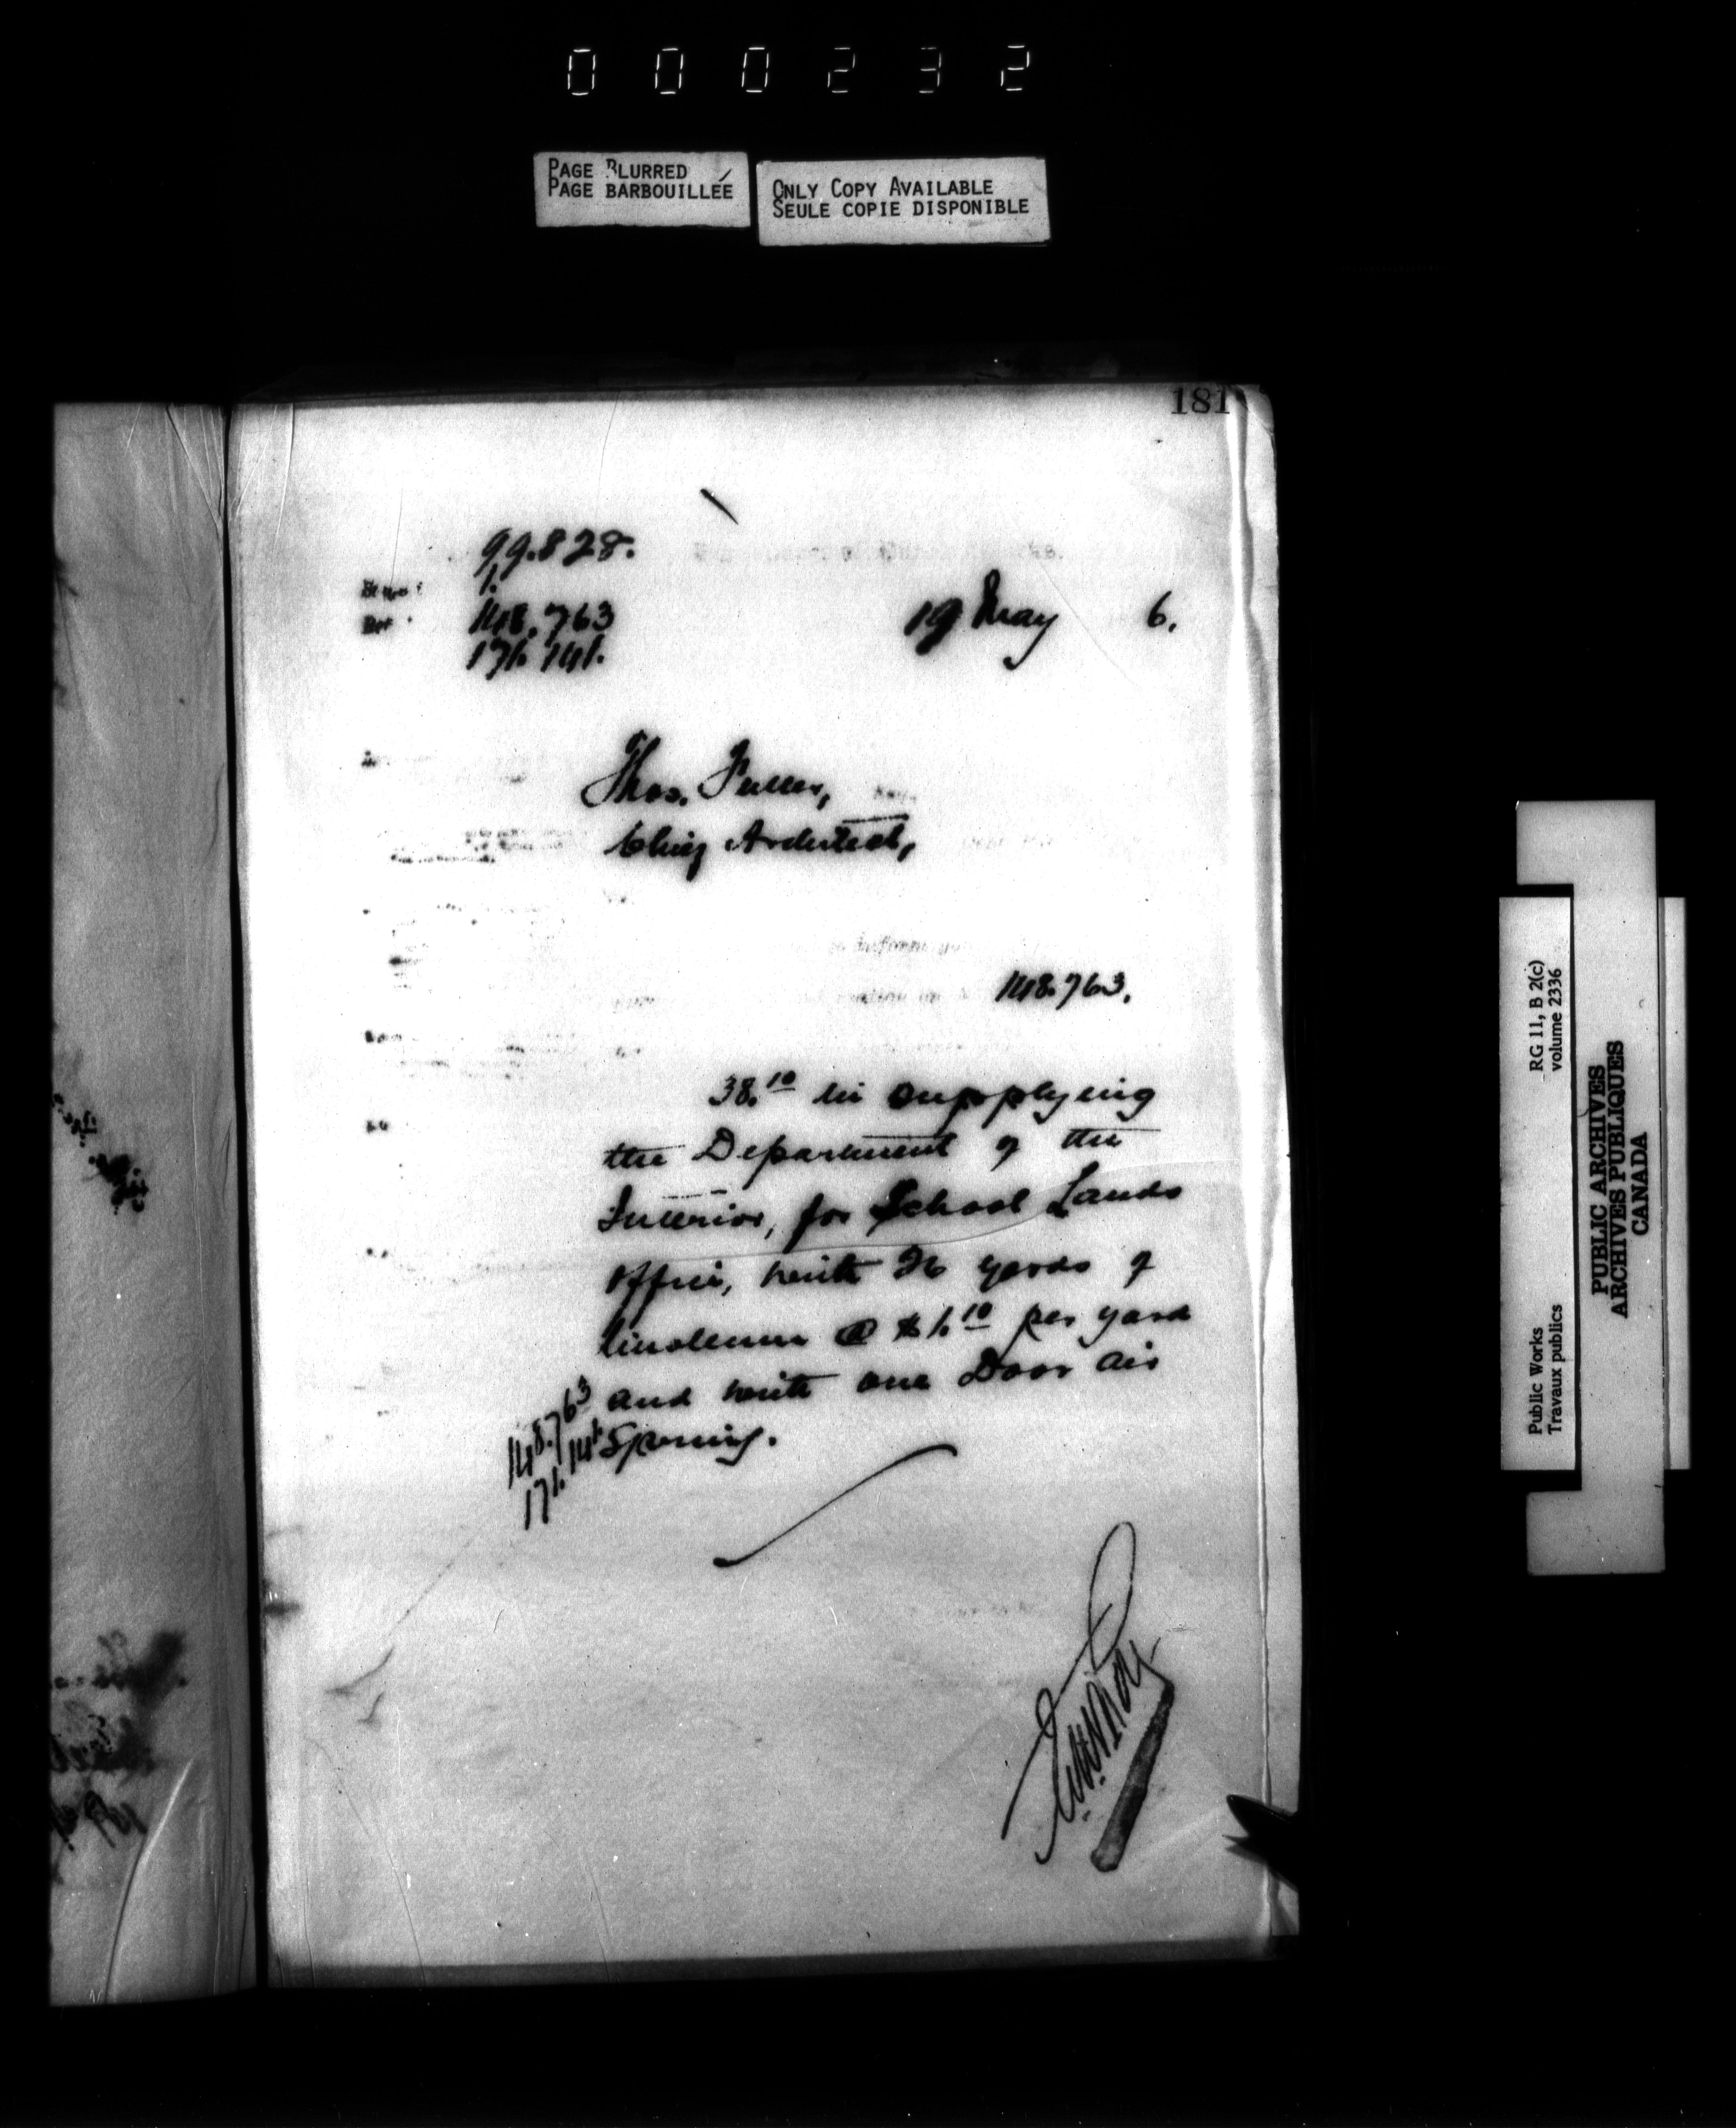 000232
PAGE BLURRED
PAGE BARBOUILLÉE
ONLY COPY AVAILABLE
SEULE COPIE DISPONIBLE
181
99.828.
1.
148.763
171.141.
19 May 6.
Thos. Fuller,
Chief Architect,
inform you
148.763.
38.10 in supplying
the Department of the
Interior, for School Lands
Office, with 26 yards of
linoleum @ $1.10 per yard
and with one Door air
Spring.
148.763
171.141
Public Works
Travaux publics
RG 11, B 2(c)
volume 2336
PUBLIC ARCHIVES
ARCHIVES PUBLIQUES
CANADA